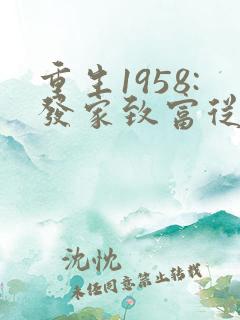 重生1958:
發家致富從
沈忱
未經同意禁止轉載